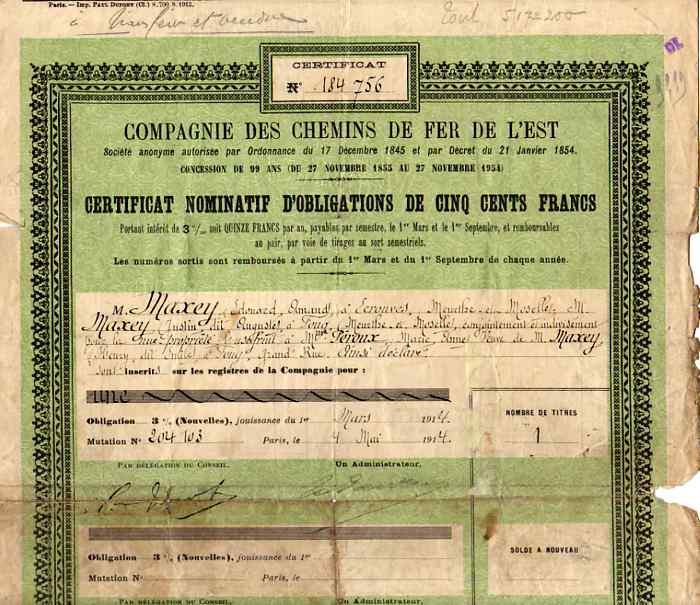 Paris. — Imp. PAUL DUPONT (Cl.) 8.700.8.1912.
à transférer et vendre
DE
CERTIFICAT
N° 184 756
COMPAGNIE DES CHEMINS DE FER DE L'EST
Société anonyme autorisée par Ordonnance du 17 Décembre 1845 et par Décret du 21 Janvier 1854.
CONCESSION DE 99 ANS (DU 27 NOVEMBRE 1855 AU 27 NOVEMBRE 1954)
CERTIFICAT NOMINATIF D'OBLIGATIONS DE CINQ CENTS FRANCS
Portant intérêt de 3 % soit QUINZE FRANCS par an, payables par semestre, le 1er Mars et le 1er Septembre, et remboursables
au pair, par voie de tirages au sort semestriels.
Les numéros sortis sont remboursés à partir du 1er Mars et du 1er Septembre de chaque année.
M. Maxey (Edouard Amand) à Ecrouves, Meurthe et Moselle, M.
Maxey (Justin dit Auguste) à Foug (Meurthe et Moselle) conjointement et indivisément
pour la nue propriété l'usufruit à Mme Féroux, Marie Anne Veuve de M. Maxey,
à Foug, Grand Rue. Ainsi déclaré
sont inscrits sur les registres de la Compagnie pour :
une
Obligation 3 % (Nouvelles), jouissance du 1er Mars 1914.
Mutation N° 204 103 Paris, le 4 Mai 1914.
NOMBRE DE TITRES
1
PAR DÉLÉGATION DU CONSEIL. Un Administrateur,
Obligation 3 % (Nouvelles), jouissance du 1er
Mutation N° Paris, le
SOLDE A NOUVEAU
PAR DÉLÉGATION DU CONSEIL. Un Administrateur,